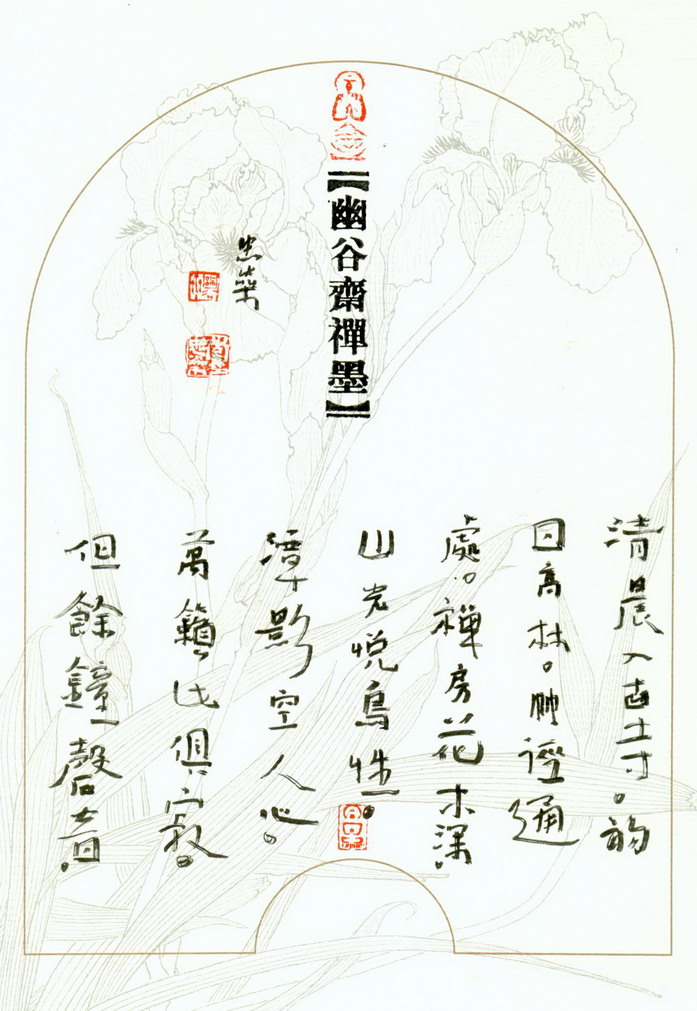 【幽谷齋禪墨】
清晨入古寺。初
日高林。徑通
處。禪房花木深。
山光悅鳥性。
潭影空人心。
萬籟此俱寂。
但餘鐘磬音。